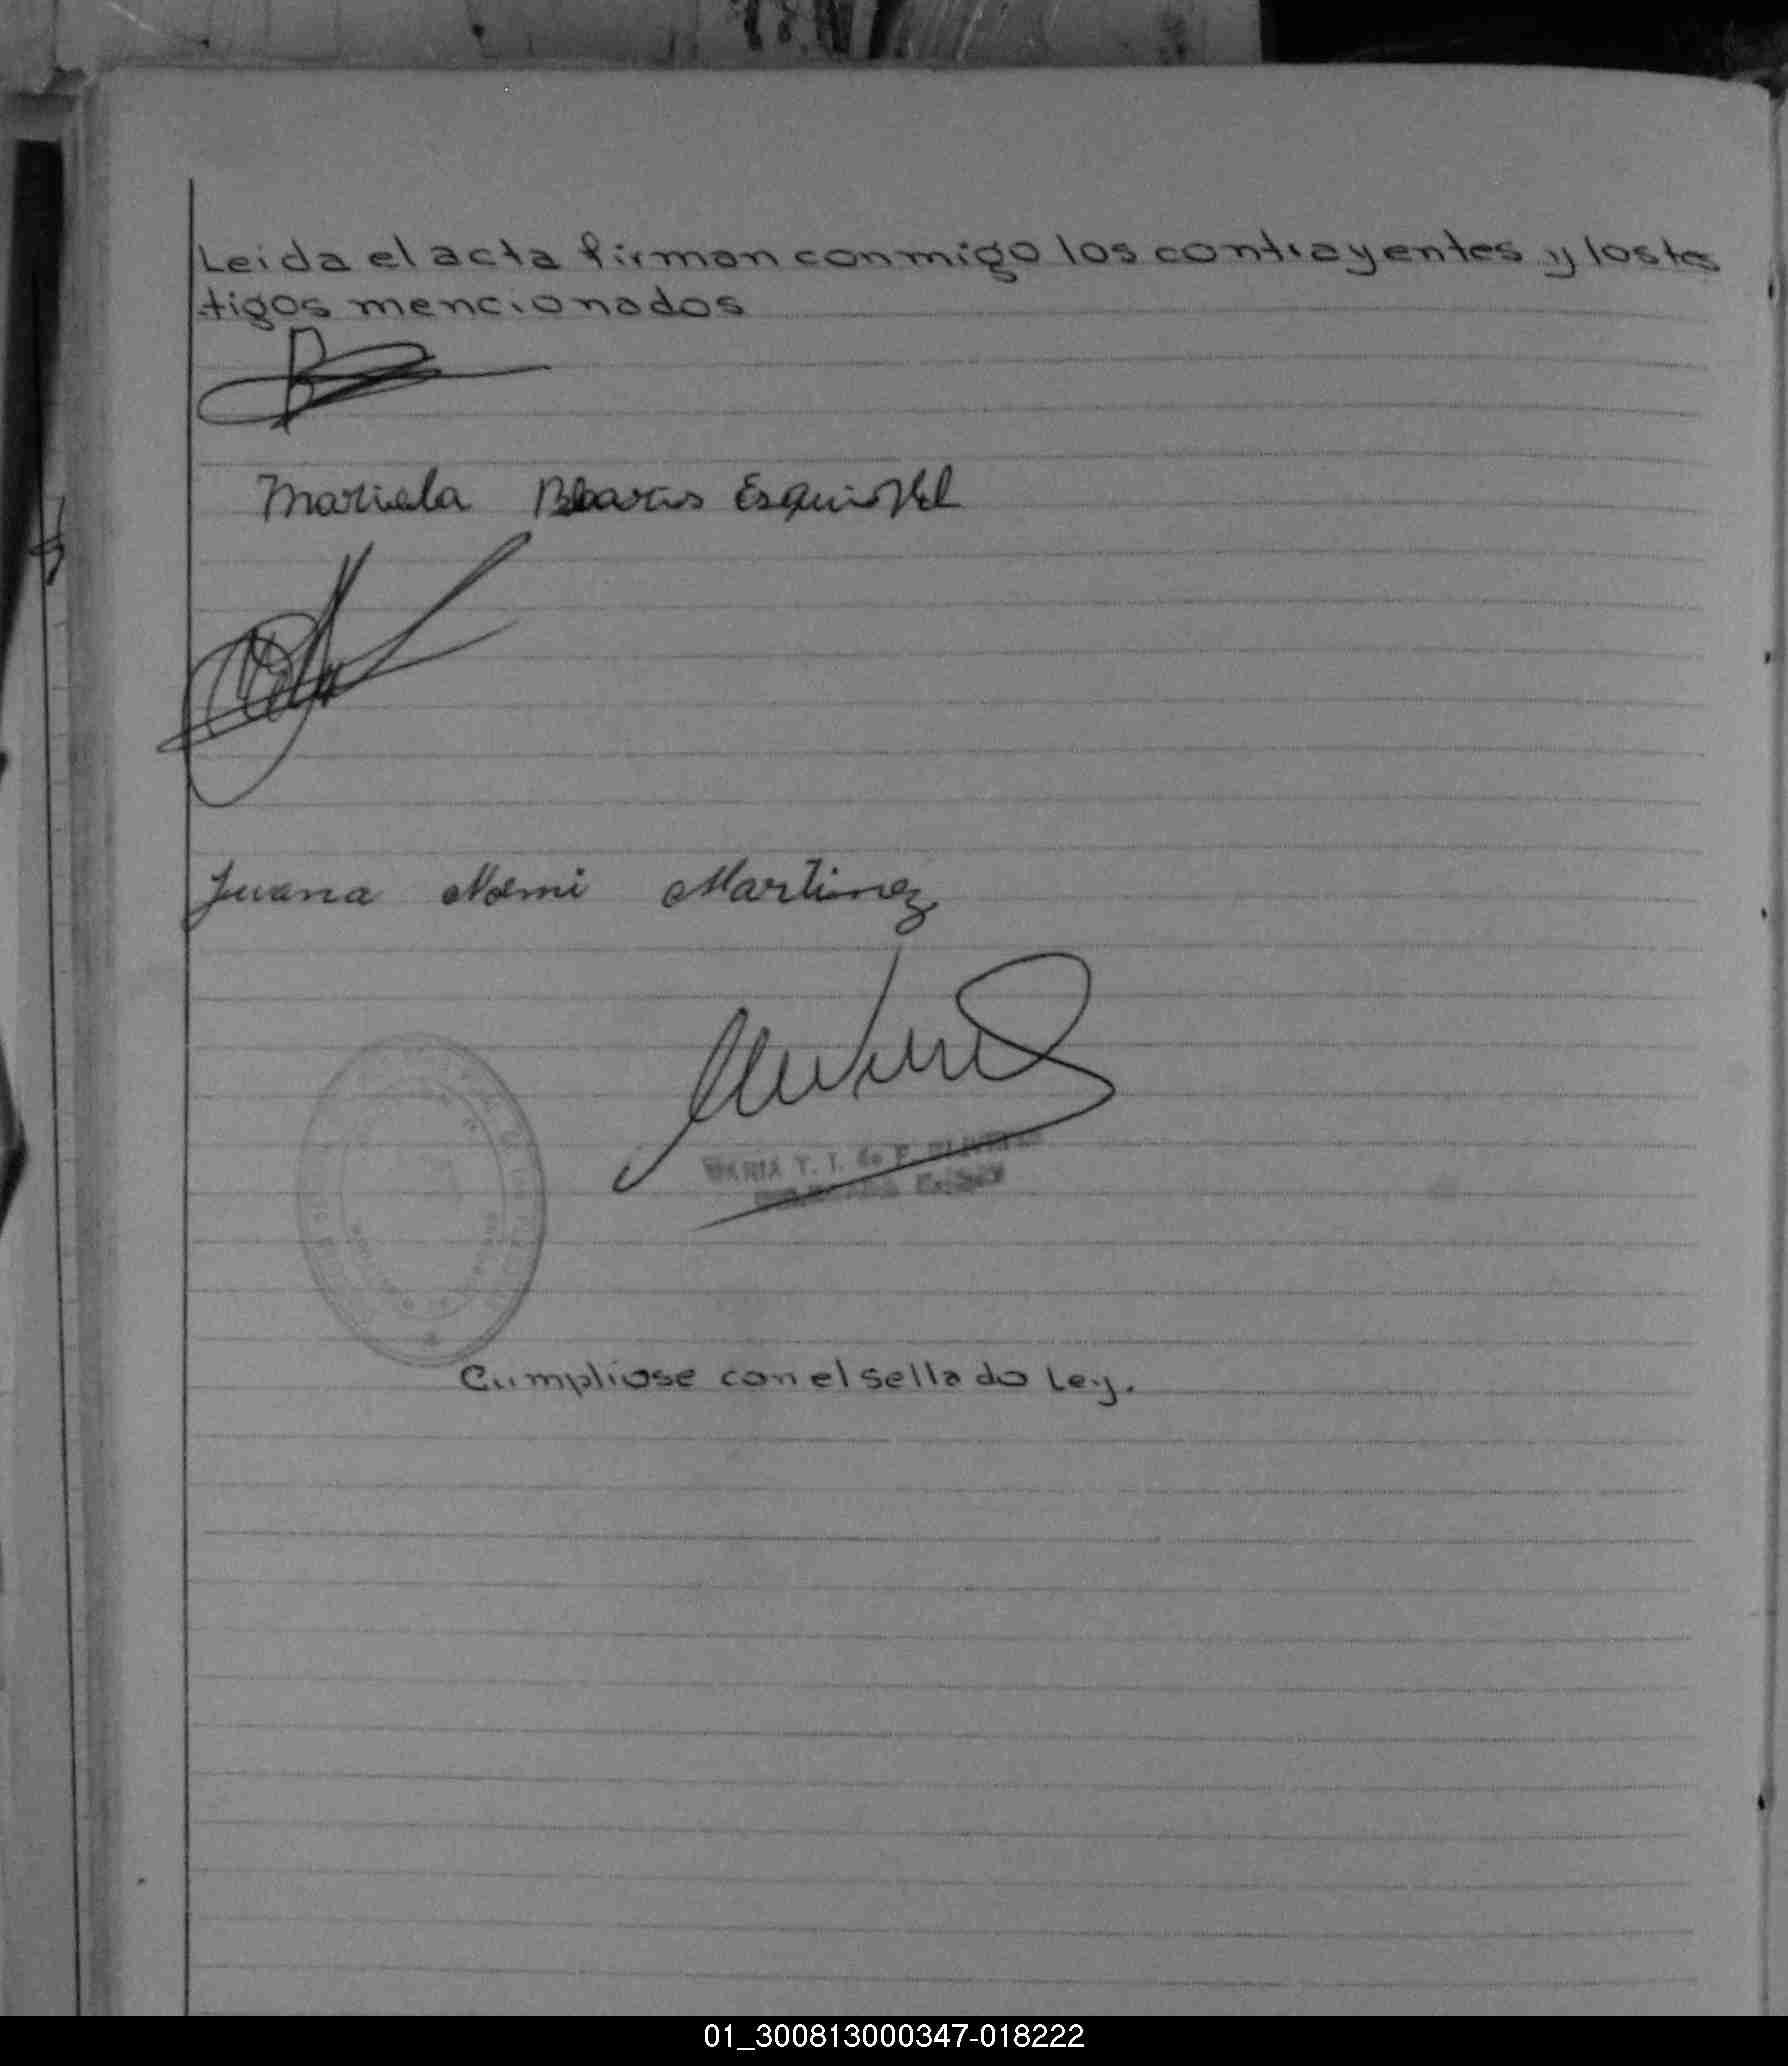 Leida el acta firman conmigo los contrayentes y los tes
tigos mencionados
Mariela Esquivel
Juana Noemi Martinez
MARIA T. T. de P.
Cumpliose con el sellado Ley.
01_300813000347-018222